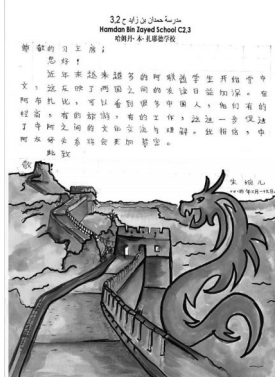 مدرسة حمدان بن زايد ح 3,2
Hamdan Bin Zayed School C2,3
哈姆丹·本·扎耶德学校
尊敬的习主席：
您好！
近年来越来越多的阿联酋学生开始学中
文，这反映了两国之间的友谊日益加深。在
阿布扎比，可以看到很多中国人，他们有的
经商，有的旅游，有的工作，这进一步促进
了中阿之间的文化交流与理解。我相信，中
阿友好关系将会更加紧密。
此致
敬